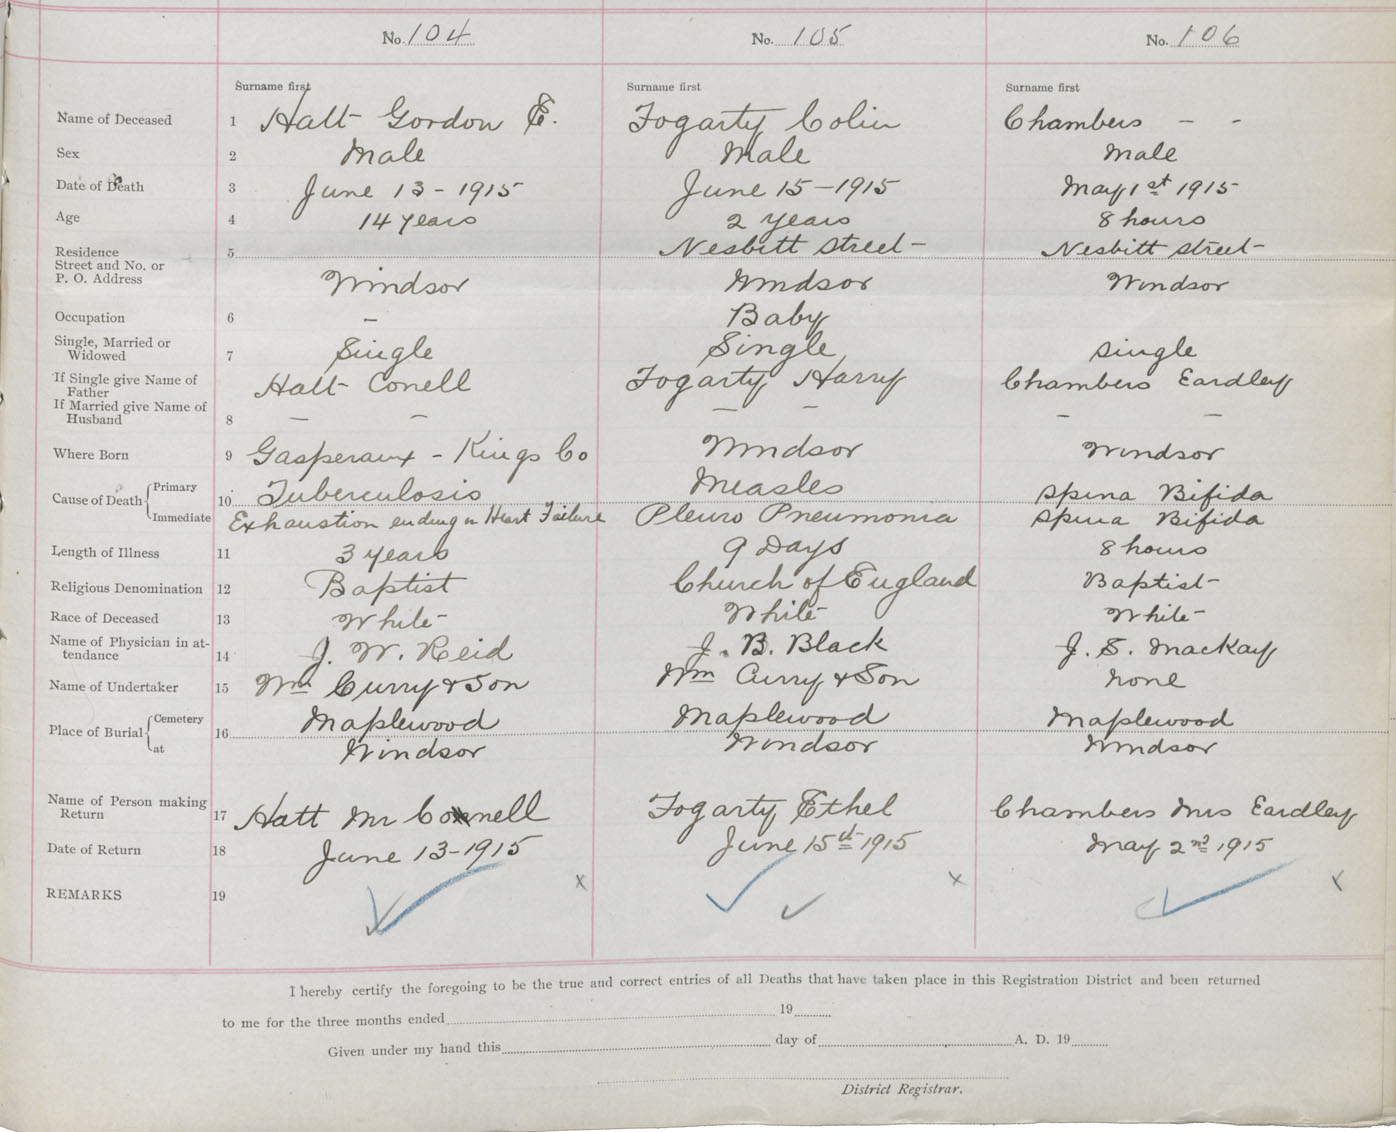 No. 104 No. 105 No. 106
Surname first Surname first Surname first
Name of Deceased 1 Hatt Gordon E. Fogarty Colin Chambers - -
Sex 2 Male Male Male
Date of Death 3 June 13 - 1915 June 15 - 1915 May 1st 1915
Age 4 14 years 2 years 8 hours
Residence 5 Nesbitt Street - Nesbitt Street -
Street and No. or
P. O. Address Windsor Windsor Windsor
Occupation 6 - Baby
Single, Married or
Widowed 7 Single Single Single
If Single give Name of
Father Hatt Conell Fogarty Harry Chambers Eardley
If Married give Name of
Husband 8 - - - - - -
Where Born 9 Gasperaux - Kings Co Windsor Windsor
Cause of Death { Primary 10 Tuberculosis Measles Spina Bifida
Immediate Exhaustion ending in Heart Failure Pleuro Pneumonia Spina Bifida
Length of Illness 11 3 years 9 Days 8 hours
Religious Denomination 12 Baptist Church of England Baptist
Race of Deceased 13 White White White
Name of Physician in at-
tendance 14 J. W. Reid J. B. Black J. S. MacKay
Name of Undertaker 15 Wm Curry & Son Wm Curry & Son None
Place of Burial { Cemetery 16 Maplewood Maplewood Maplewood
at Windsor Windsor Windsor
Name of Person making
Return 17 Hatt Mr Connell Fogarty Ethel Chambers Mrs Eardley
Date of Return 18 June 13 - 1915 June 15th 1915 May 2nd 1915
REMARKS 19 x x x
I hereby certify the foregoing to be the true and correct entries of all Deaths that have taken place in this Registration District and been returned
to me for the three months ended 19
Given under my hand this day of A. D. 19
District Registrar.